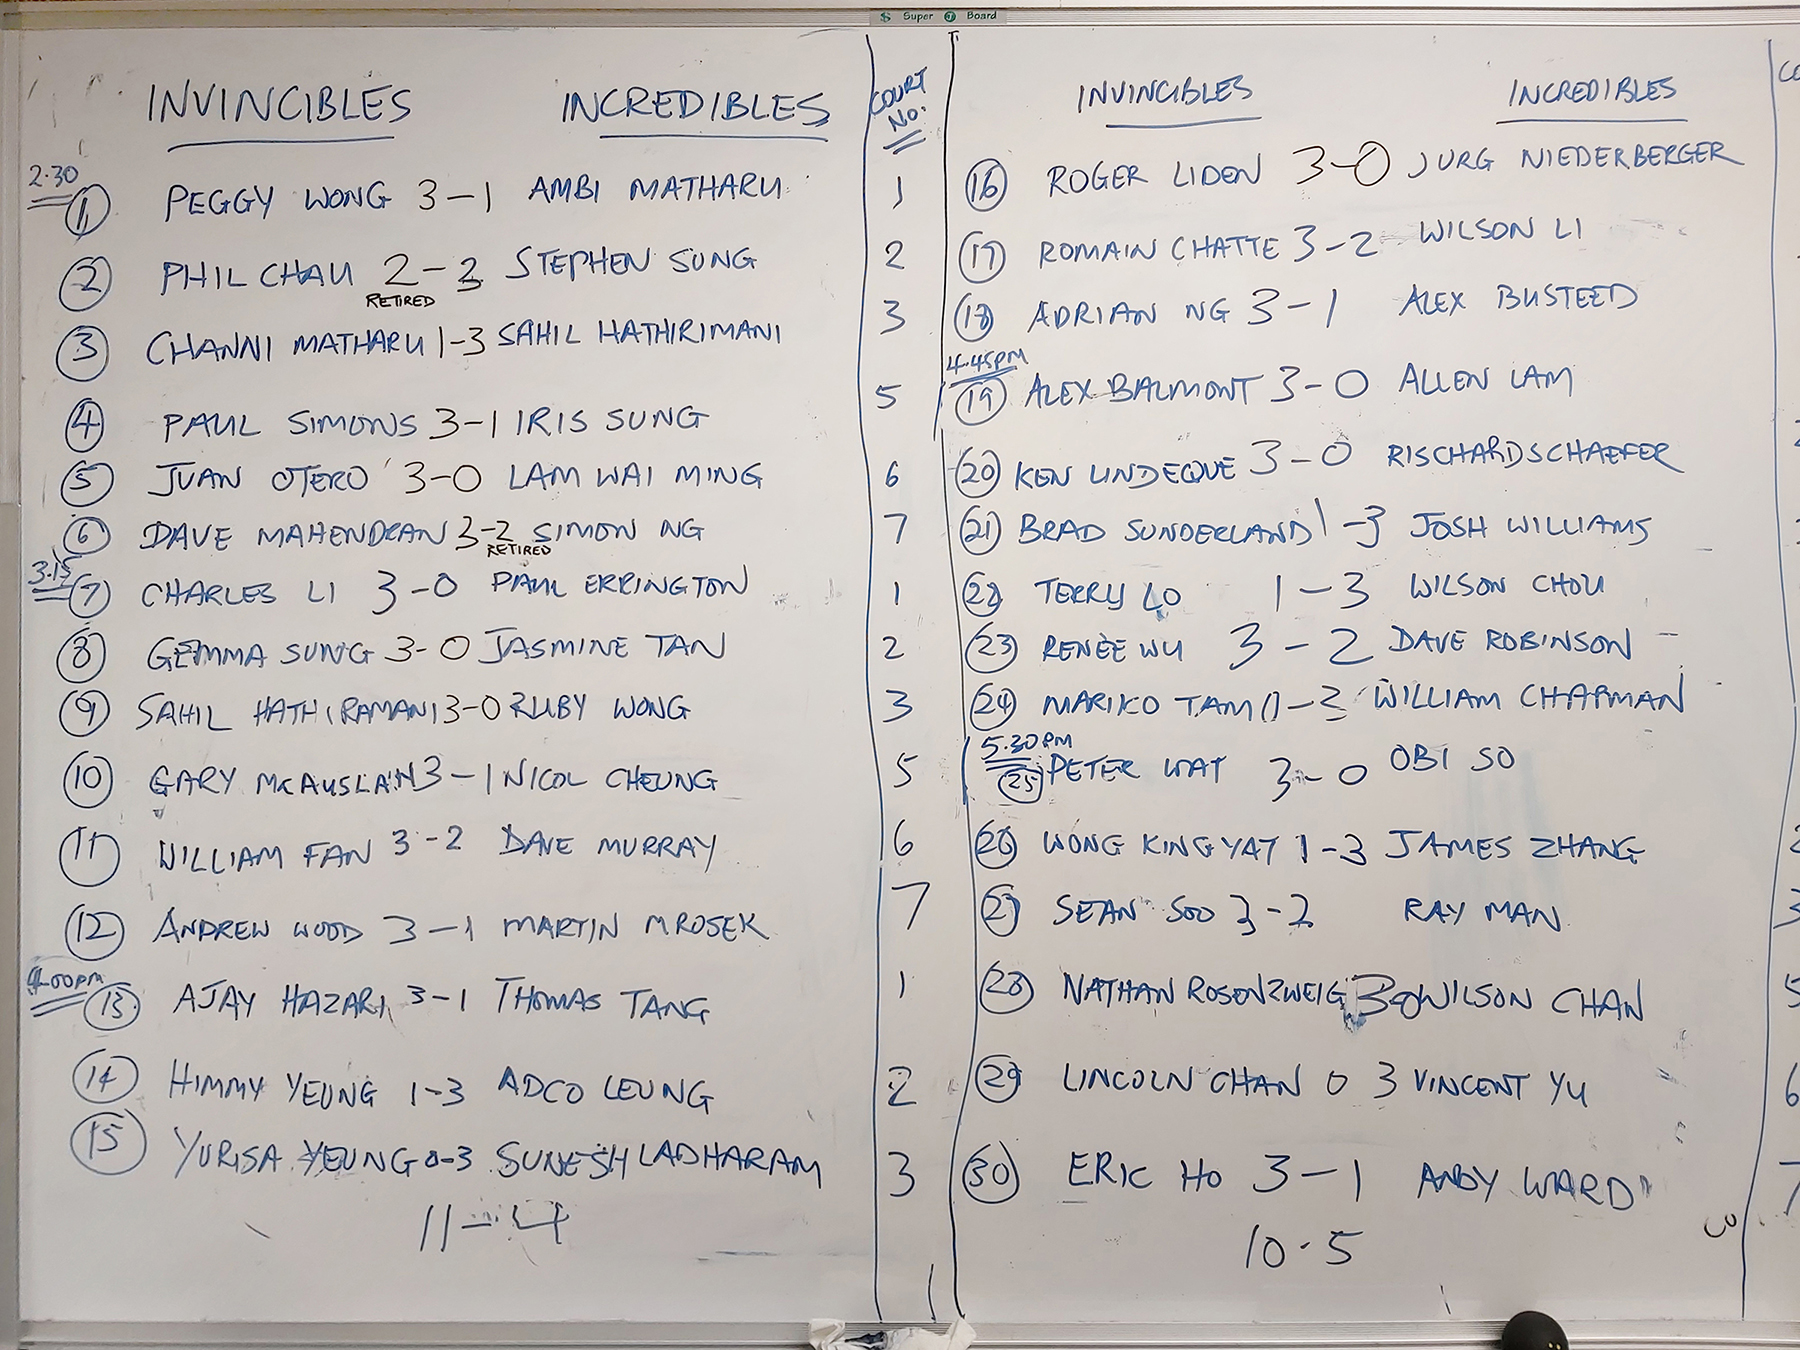 Super Board
INVINCIBLES INCREDIBLES COURT No:
2.30
1 PEGGY WONG 3-1 AMBI MATHARU 1
2 PHIL CHAU 2-3 STEPHEN SUNG 2
RETIRED
3 CHANNI MATHARU 1-3 SAHIL HATHIRIMANI 3
4 PAUL SIMONS 3-1 IRIS SUNG 5
5 JUAN OTERO 3-0 LAM WAI MING 6
6 DAVE MAHENDRAN 3-2 SIMON NG 7
RETIRED
3.15
7 CHARLES LI 3-0 PAUL ERRINGTON 1
8 GEMMA SUNG 3-0 JASMINE TAN 2
9 SAHIL HATHIRAMANI 3-0 RUBY WONG 3
10 GARY McAUSLAN 3-1 NICOL CHEUNG 5
11 WILLIAM FAN 3-2 DAVE MURRAY 6
12 ANDREW WOOD 3-1 MARTIN MROSEK 7
4.00PM
13 AJAY HAZARI 3-1 THOMAS TANG 1
14 HIMMY YEUNG 1-3 ADCO LEUNG 2
15 YURISA YEUNG 0-3 SUNESH LADHARAM 3
11-4
INVINCIBLES INCREDIBLES CO
16 ROGER LIDEN 3-0 JURG NIEDERBERGER
17 ROMAIN CHATTE 3-2 WILSON LI
18 ADRIAN NG 3-1 ALEX BUSTEED
4.45PM
19 ALEX BALMONT 3-0 ALLEN LAM
20 KEN LINDEQUE 3-0 RISCHARD SCHAEFER
21 BRAD SUNDERLAND 1-3 JOSH WILLIAMS
22 TERRY LO 1-3 WILSON CHOU
23 RENEE WU 3-2 DAVE ROBINSON
24 MARIKO TAM 0-3 WILLIAM CHAPMAN
5.30PM
25 PETER WAT 3-0 OBI SO
26 WONG KING YAT 1-3 JAMES ZHANG 2
27 SEAN SOO 3-2 RAY MAN 3
28 NATHAN ROSENZWEIG 3-0 WILSON CHAN 5
29 LINCOLN CHAN 0 3 VINCENT YU 6
30 ERIC HO 3-1 ANDY WARD 7
10-5